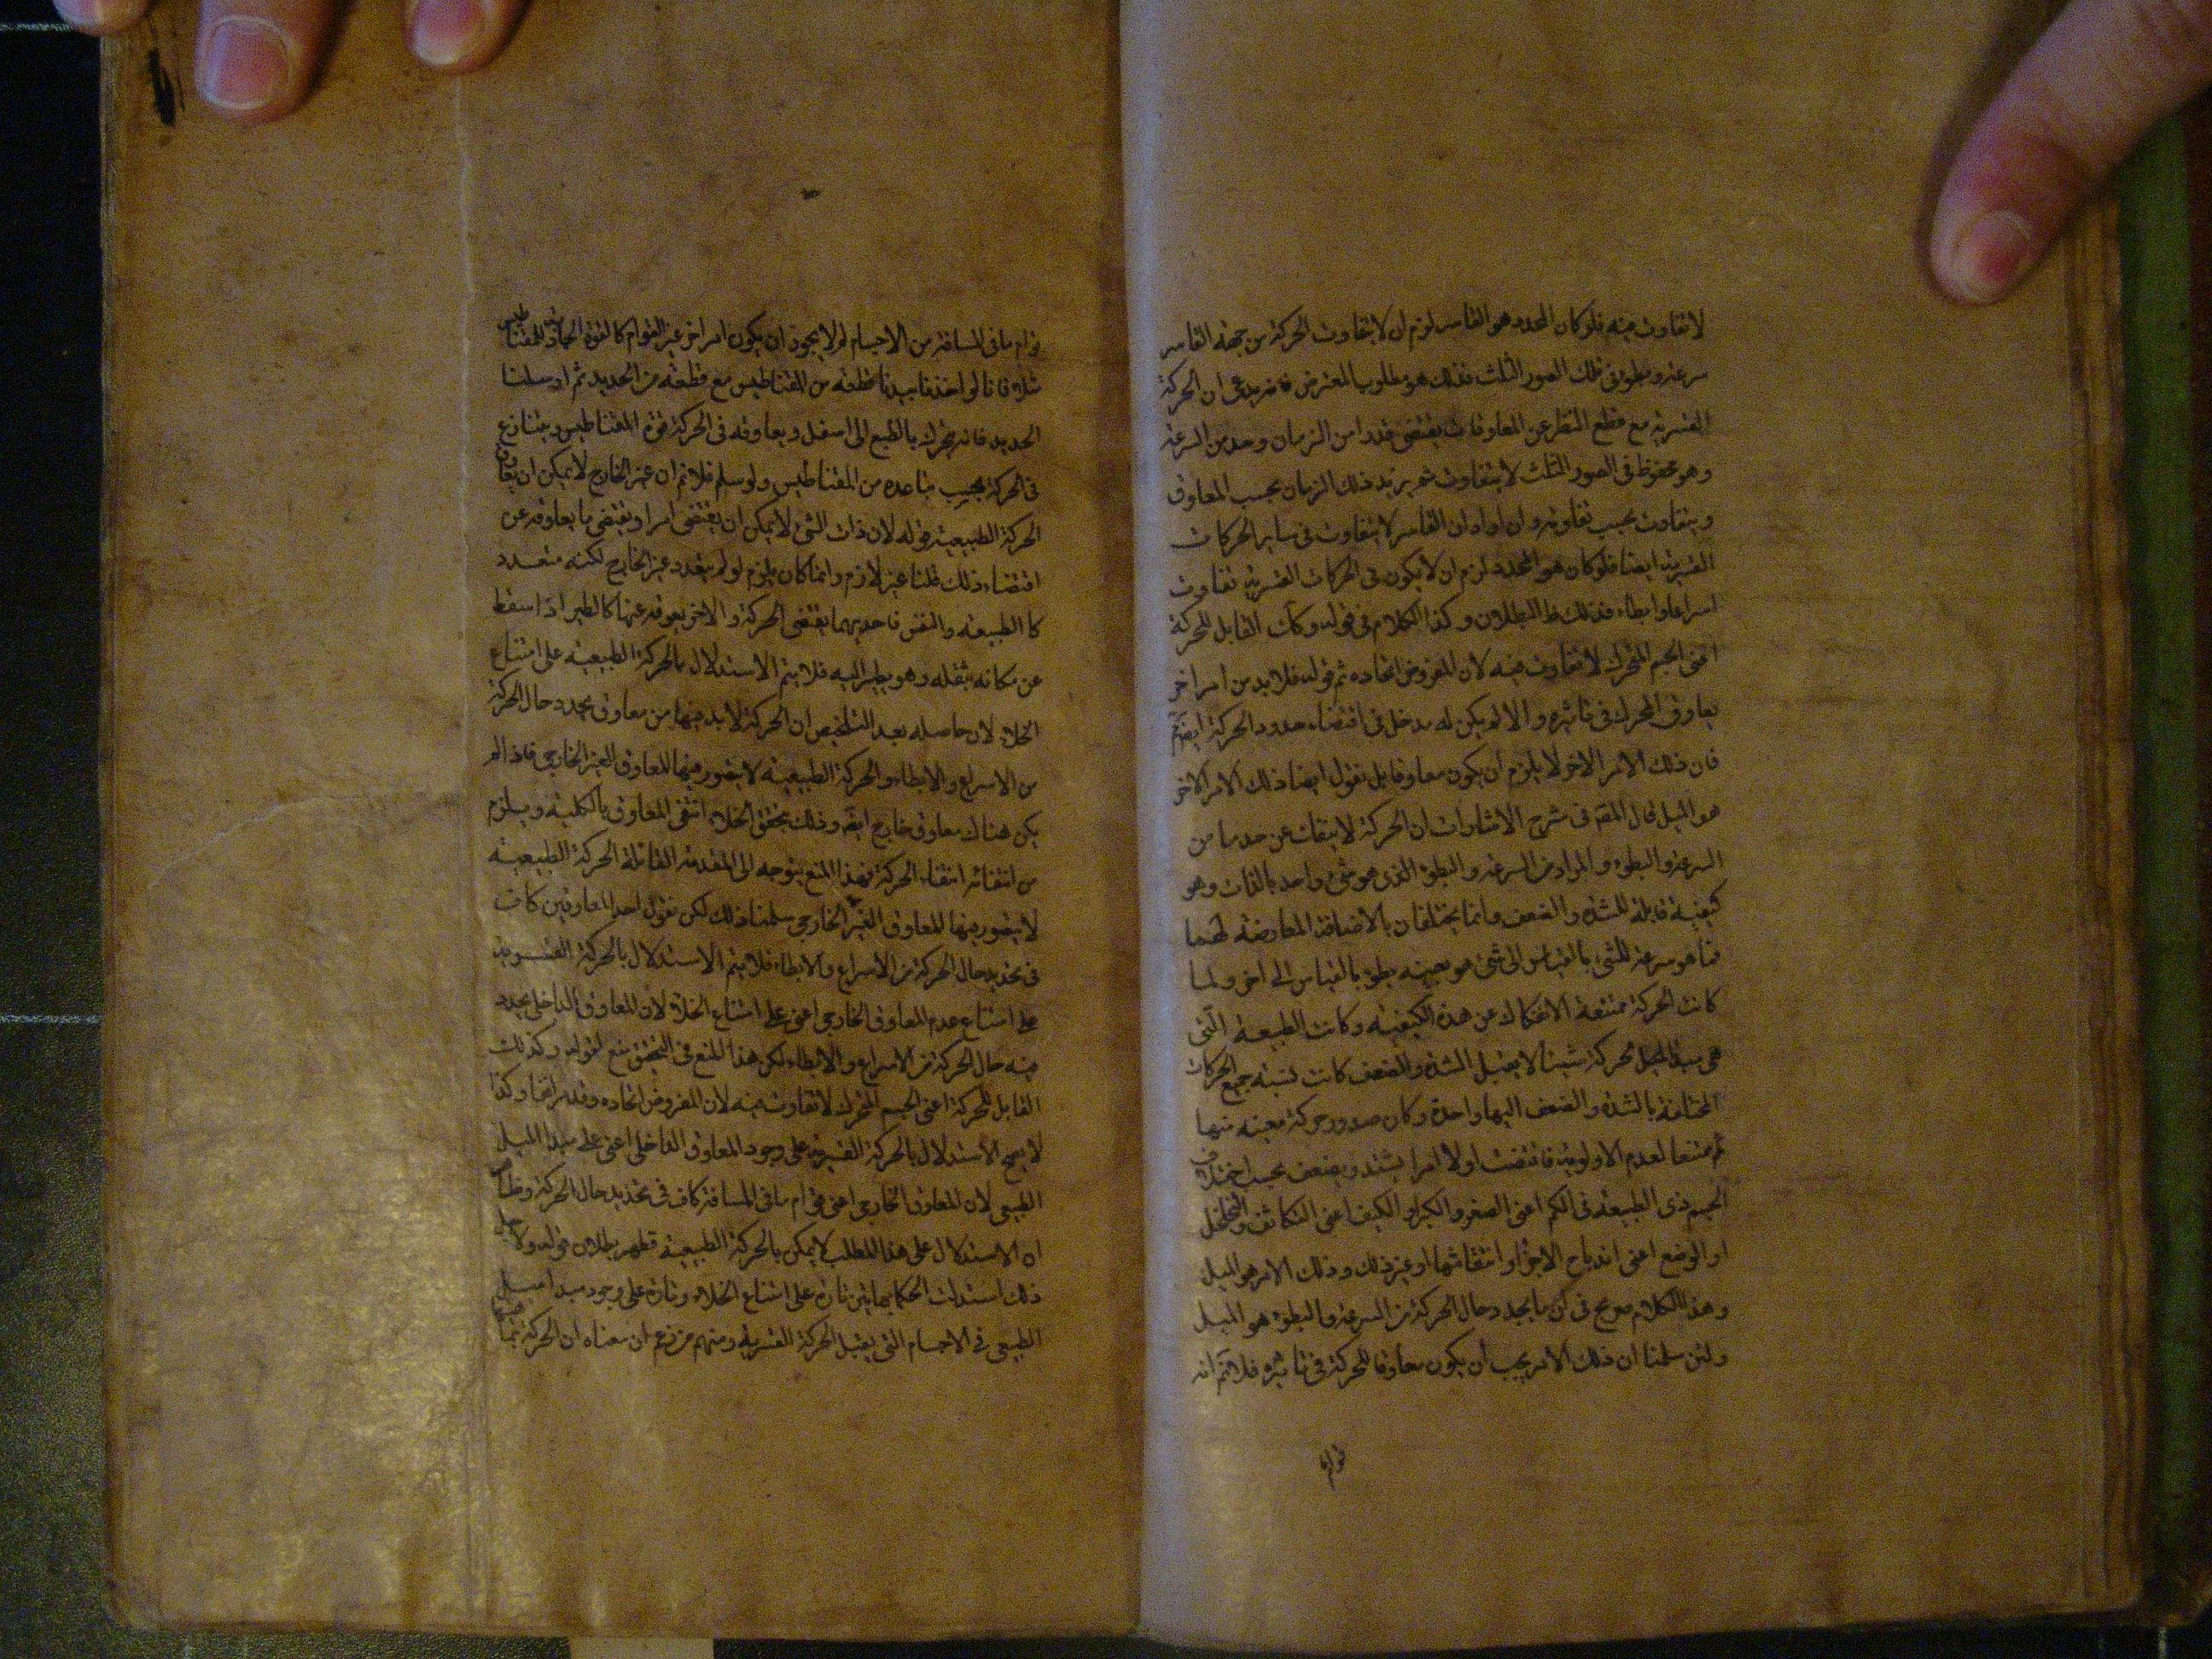 لا تفاوت فيه فلو كان المحدد هو القاسر لزم ان لا يتفاوت الحركة من جهة القاسر
سرعة وبطؤ فى تلك الصور الثلث فذلك هو مطلوب المعترض فانه يدعى ان الحركة
القسرية مع قطع النظر عن المعاوقات يقتضى قدرا من الزمان وحد من السرعة
وهو محفوظ فى الصور الثلث لا يتفاوت ثم يزيد ذلك الزمان بحسب المعاوق
ويتفاوت بحسب تفاوته وان اراد ان القاسر لا يتفاوت فى ساير الحركات
القسرية ايضا فلو كان هو المحدد لزم ان لا يكون فى الحركات القسرية تفاوت
اسراعا وابطاء فذلك ظ البطلان وكذا الكلام فى قوله وكك القابل للحركة
اعنى الجسم المتحرك لا تفاوت فيه لان المفروض اتحاده ثم قوله فلا بد من امر اخر
يعاوق المحرك فى تاثيره والا لم يكن له مدخل فى اقتضاء حدود الحركة ايضا مم
فان ذلك الامر الاخر لا يلزم ان يكون معاوقا بل نقول ايضا ذلك الامر الاخر
هو الميل قال المص فى شرح الاشارات ان الحركة لا ينفك عن حد ما من
السرعة والبطوء والمراد من السرعة والبطؤ الذى هو شىء واحد بالذات وهو
كيفية قابلة للشدة والضعف وانما يختلفان بالاضافة العارضة لهما
فما هو سرعة للشىء بالقياس الى شىء هو بعينه بطؤ بالقياس الى اخر ولما
كانت الحركة ممتنعة الانفكاك عن هذه الكيفية وكانت الطبيعة التى
هى مبدا الميل للحركة شيئا لا يقبل الشدة والضعف كانت نسبة جميع الحركات
المختلفة بالشدة والضعف اليها واحدة وكان صدور حركة معينة منها
ممتنعا لعدم الاولوية فاقتضت اولا امرا يشتد ويضعف بحسب اختلاف
الجسم ذى الطبيعة فى الكم اعنى الصغر والكبر او الكيف اعنى التكاثف والتخلخل
او الوضع اعنى اندماج الاجزاء وانتفاشها او غير ذلك وذلك الامر هو الميل
وهذا الكلام صريح فى ان ما يحدد حال الحركة من السرعة والبطؤ هو الميل
ولئن سلمنا ان ذلك الامر يجب ان يكون معاوقا للحركة فى تاثيره فلا نم انه
قوام
قوام ما فى المسافة من الاجسام لم لا يجوز ان يكون امرا اخر غير القوام كالقوة الجاذبة للمغناطيس
مثلا فانا لو اخذنا بيدنا قطعة من المغناطيس مع قطعة من الحديد ثم ارسلنا
الحديد فانه يتحرك بالطبع الى اسفل ويعاوقه فى الحركة قوة المغناطيس ويتنازع
فى الحركة بحسب تباعده من المغناطيس ولو سلم فلا نم ان غير الخارج لا يمكن ان يعاوق
الحركة الطبيعية قوله لان ذات الشى لا يمكن ان يقتضى امرا ويقتضى ما يعاوقه عن
اقتضاء ذلك قلنا غير لازم وانما كان يلزم لو لم يتعدد غير الخارج لكنه متعدد
كالطبيعة والنفس فاحديهما يقتضى الحركة والاخر يعوقه عنها كالطير اذا سقط
عن مكانه بثقله وهو يطير اليه فلا يتم الاستدلال بالحركة الطبيعية على امتناع
الخلاء لان حاصله بعد التلخيص ان الحركة لا بد فيها من معاوق يحدد حال الحركة
من الاسراع والابطاء والحركة الطبيعية لا يتصور فيها المعاوق الغير الخارجى فاذا لم
يكن هناك معاوق خارجى ايضا وذلك بتحقق الخلاء انتفى المعاوق بالكلية ويلزم
من انتفائه انتفاء الحركة فهذا المنع يتوجه الى المقدمة القائلة الحركة الطبيعية
لا يتصور فيها المعاوق الغير الخارجى سلمنا ذلك لكن نقول احد المعاوقين كاف
فى تحديد حال الحركة من الاسراع والابطاء فلا يتم الاستدلال بالحركة القسرية
على امتناع عدم المعاوق الخارجى اعنى على امتناع الخلاء لان المعاوق الداخلى يحدد
فيه حال الحركة من الاسراع والابطاء لكن هذا المنع فى التحقيق منع لقوله وكذلك
القابل للحركة اعنى الجسم المتحرك لا تفاوت فيه لان المفروض اتحاده وقد مر انفا وكذا
لا يصح الاستدلال بالحركة القسرية على وجود المعاوق الداخلى اعنى على مبدا الميل
الطبيعى لان المعاوق الخارجى اعنى قوام ما فى المسافة كاف فى تحديد حال الحركة وظاهر
ان الاستدلال على هذا المطلب لا يمكن بالحركة الطبيعية فظهر بطلان قوله ولاجل
ذلك استدلت الحكما بهاتين تارة على امتناع الخلاء وتارة على وجود مبدا ميل
الطبيعى فى الاجسام التى يقبل الحركة القسرية ومنهم من زعم ان معناه ان الحركة بنفسها